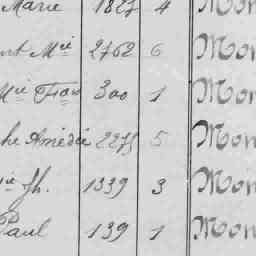 Marie 1827 4 Mon
nt Mie 2762 6 Mon
Mie Fçois 300 1 Mon
he Amédée 2275 5 Mon
ie Jh. 1339 3 Mon
Paul 139 1 Mon